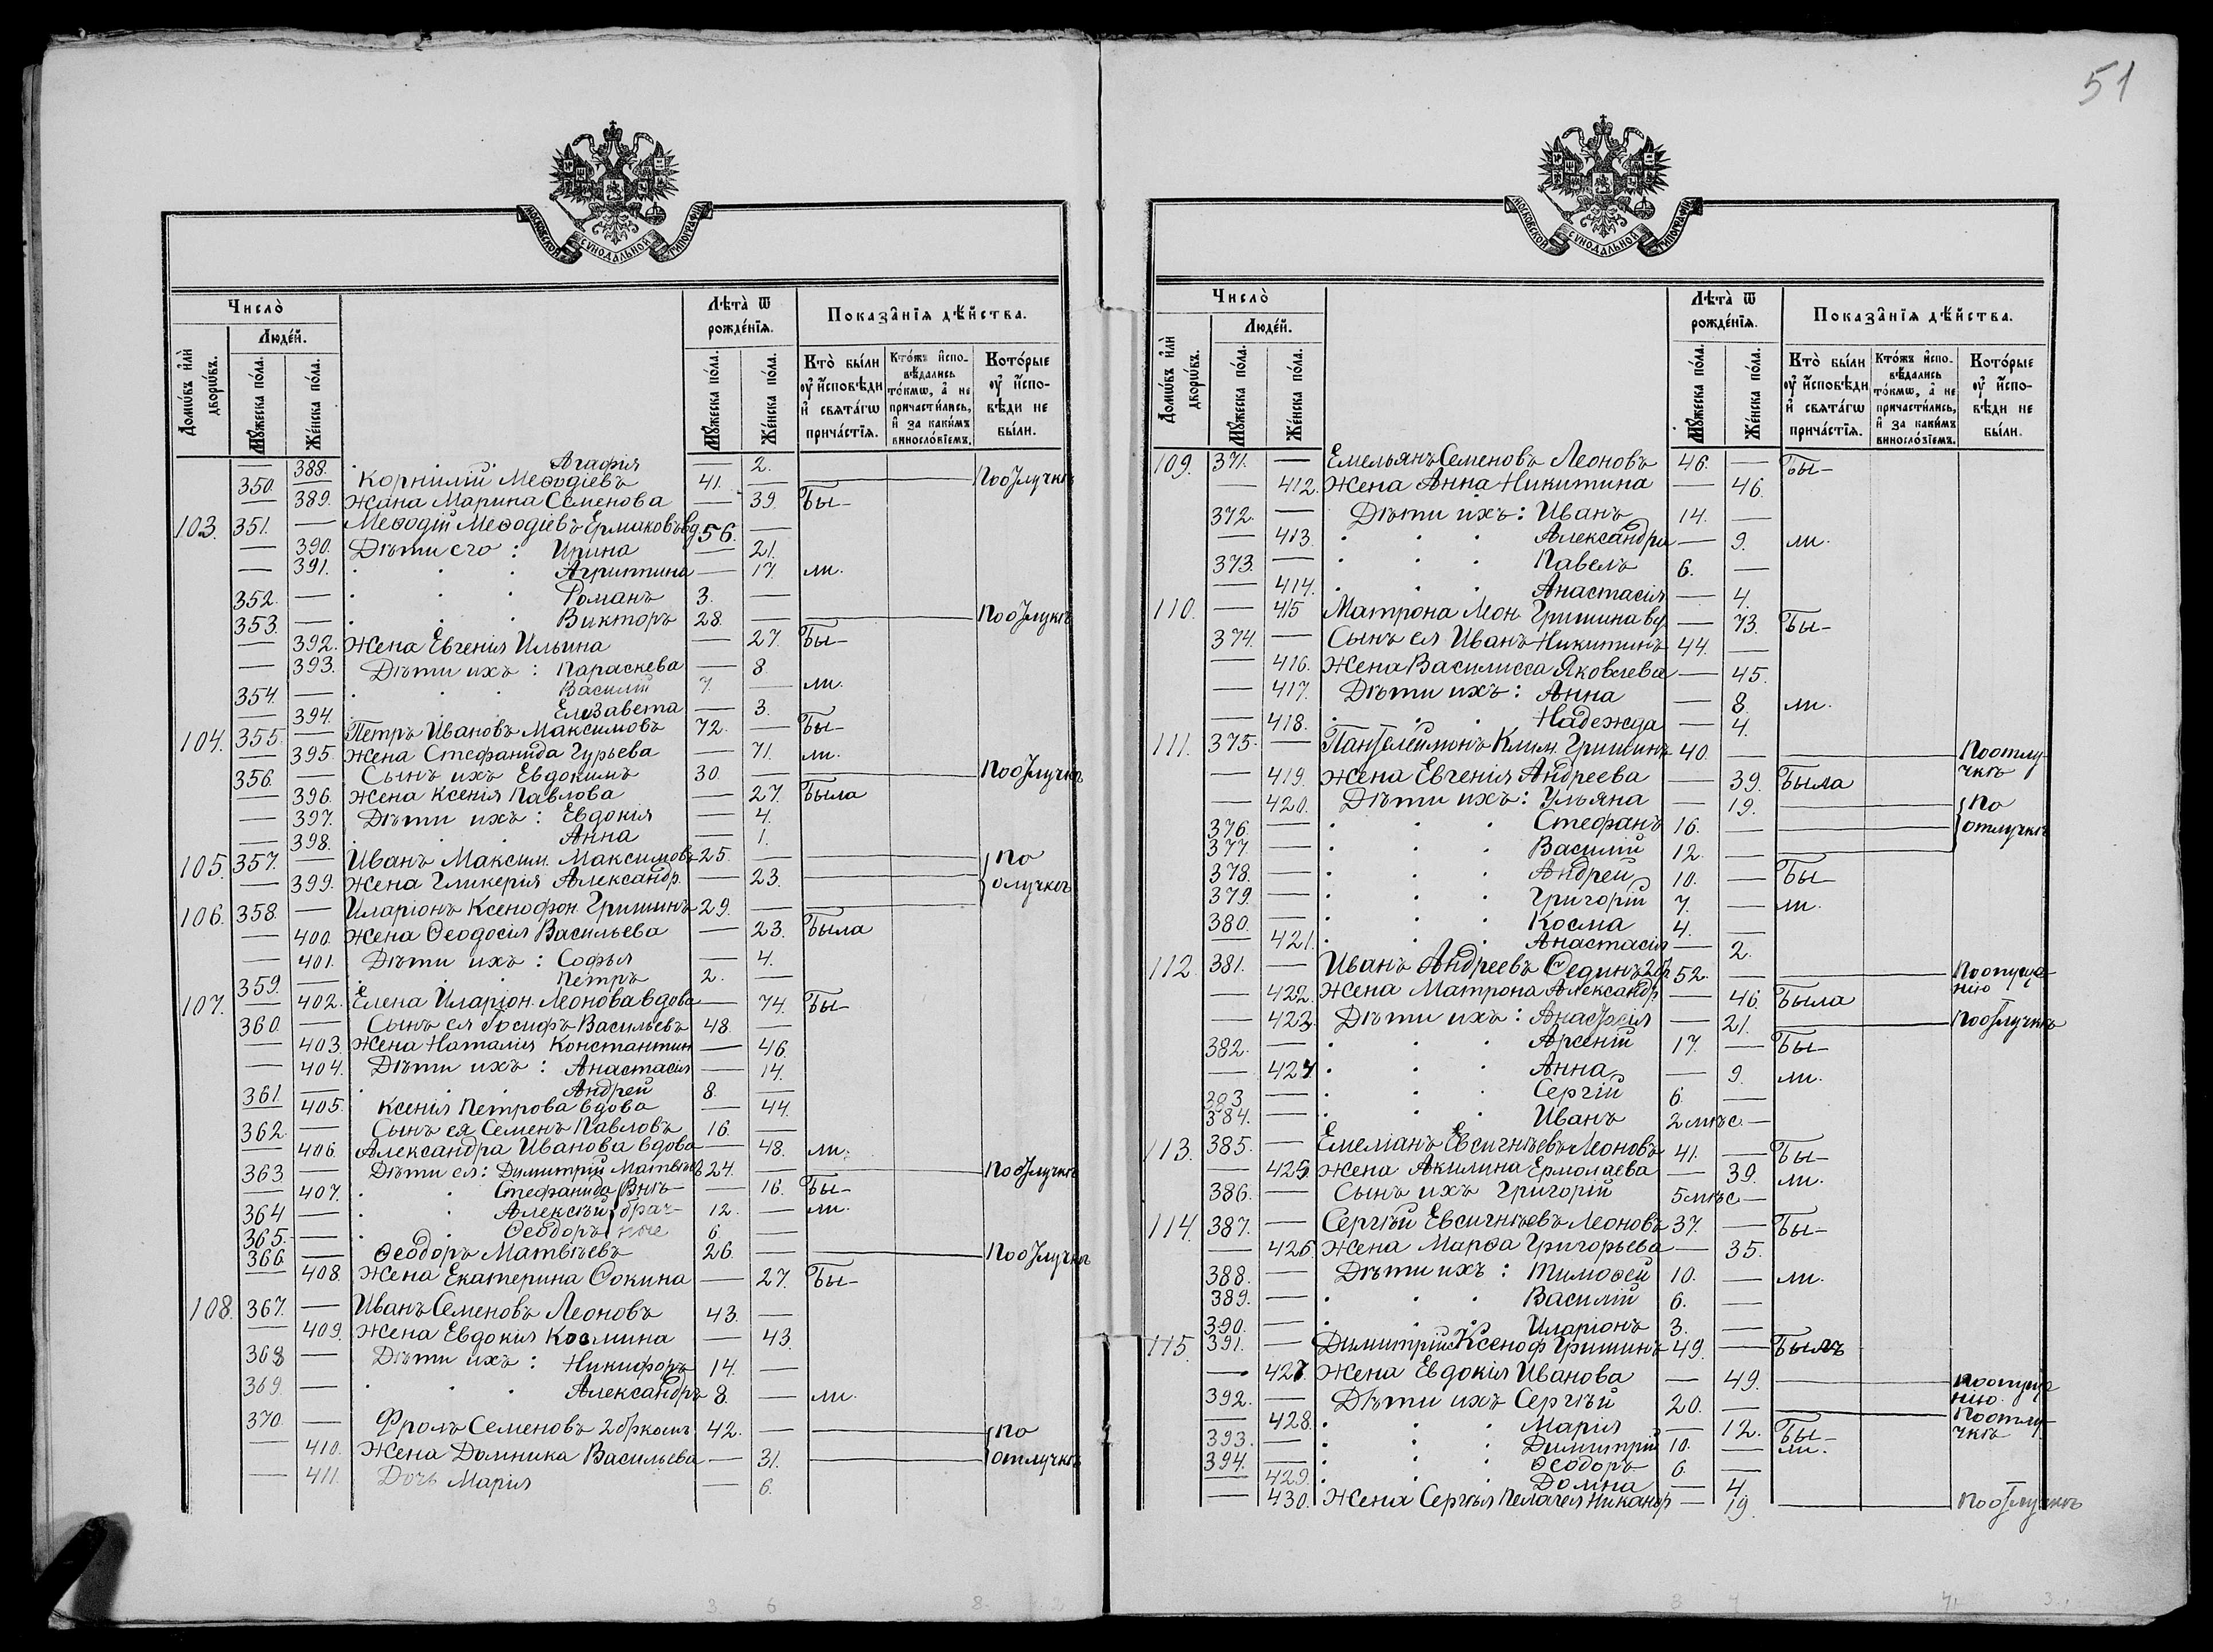 51
МОСКОВСКОЙ СѴНОДАЛЬНОЙ ТИПОГРАФІИ
Число̀
Домѡ́въ и҆лѝ дворѡ́въ.
Люде́й.
Мꙋ́жеска по́ла.
Же́нска по́ла.
Лѣ́та ѿ рожде́нїѧ.
Мꙋ́жеска по́ла.
Же́нска по́ла.
Показа̑нїѧ дѣ́йства.
Кто̀ бы́ли ᲂу҆ и҆́сповѣди и҆ свѧта́гѡ прича́стїѧ.
Кто́жъ и҆спо-вѣ́дались то́кмѡ, а҆ не причасти́лись, и҆ за каки́мъ винослѡ́вїемъ.
Кото́рые ᲂу҆ и҆́спо-вѣди не бы́ли.
— 388. . . . Агафія — 2.
350 — Корнилій Меѳодіевъ 41. — По отлучкѣ
— 389. Жена Марина Семенова — 39. Бы-
103. 351. — Меѳодій Меѳодіевъ Ермаковъ вд 56. —
— 390. Дѣти его: Ирина — 21.
— 391. . . . Агриппина — 17. ли.
352. — . . . Романъ 3. —
353. — . . . Викторъ 28. — По отлучкѣ
— 392. Жена Евгенія Ильина — 27. Бы-
— 393. Дѣти ихъ: Параскева — 8
354. — . . . Василій 7. — ли.
— 394. . . . Елизавета — 3.
104. 355. — Петръ Ивановъ Максимовъ 72. — Бы-
— 395. Жена Стефанида Гурьева — 71. ли.
356. — Сынъ ихъ Евдокимъ 30. — По отлучкѣ
— 396. Жена Ксенія Павлова — 27. Была
— 397. Дѣти ихъ: Евдокія — 4.
— 398. . . . Анна — 1.
105. 357. — Иванъ Максим. Максимовъ 25. — По
— 399. Жена Гликерія Александр. — 23. отлучкѣ
106. 358. — Иларіонъ Ксенофон. Гришинъ 29. —
— 400. Жена Ѳеодосія Васильева — 23. Была
— 401. Дѣти ихъ: Софья — 4.
359. — . . . Петръ 2. —
107. — 402. Елена Иларіон. Леонова вдова — 74. Бы-
360. — Сынъ ея Іосифъ Васильевъ 48. —
— 403. Жена Наталія Константин — 46.
— 404. Дѣти ихъ: Анастасія — 14.
361 — . . . Андрей 8. —
— 405. Ксенія Петрова вдова — 44.
362 — Сынъ ея Семенъ Павловъ 16. —
— 406. Александра Иванова вдова — 48. ли.
363 — Дѣти ея: Димитрій Матвѣевъ 24. — По отлучкѣ
— 407. . . Стефанида Внѣ- — 16. Бы-
364 — . . Алексѣй брач- 12. — ли.
365. — . . Ѳеодоръ ные 6 —
366 — Ѳеодоръ Матвѣевъ 26. — По отлучкѣ
— 408. Жена Екатерина Фокина — 27. Бы-
108. 367. — Иванъ Семеновъ Леоновъ 43. —
— 409. Жена Евдокія Козмина — 43.
368 — Дѣти ихъ: Никифоръ 14. —
369. — . . . Александръ 8. — ли.
370. — Фролъ Семеновъ 2 бркомъ 42. — По
— 410. Жена Домника Васильева — 31. отлучкѣ
— 411. Дочь Марія — 6.
Число̀
Домѡ́въ и҆лѝ дворѡ́въ.
Люде́й.
Мꙋ́жеска по́ла.
Же́нска по́ла.
Лѣ́та ѿ рожде́нїѧ.
Мꙋ́жеска по́ла.
Же́нска по́ла.
Показа̑нїѧ дѣ́йства.
Кто̀ бы́ли ᲂу҆ и҆́сповѣди и҆ свѧта́гѡ прича́стїѧ.
Кто́жъ и҆спо-вѣ́дались то́кмѡ, а҆ не причасти́лись, и҆ за каки́мъ винослѡ́вїемъ.
Кото́рые ᲂу҆ и҆́спо-вѣди не бы́ли.
МОСКОВСКОЙ СѴНОДАЛЬНОЙ ТИПОГРАФІИ
109. 371. — Емельянъ Семеновъ Леоновъ 46. — Бы-
— 412. Жена Анна Никитина — 46.
372. — Дѣти ихъ: Иванъ 14. —
— 413. . . . Александра — 9. ли.
373. — . . . Павелъ 6. —
— 414. . . . Анастасія — 4.
110. — 415 Матрона Мон. Гришина вд. — 73. Бы-
374. — Сынъ ея Иванъ Никитинъ 44. —
— 416. Жена Василисса Яковлева — 45.
— 417. Дѣти ихъ: Анна — 8. ли.
— 418. . . . Надежда — 4.
111. 375. — Пантелеимонъ Клим. Гришинъ 40. — По отлу-
чкѣ
— 419. Жена Евгенія Андреева — 39. Была
— 420. Дѣти ихъ: Ульяна — 19. По
376. — . . . Стефанъ 16. — отлучкѣ
377. — . . . Василій 12. —
378. — . . . Андрей 10. — Бы-
379. — . . . Григорій 7. — ли.
380. — . . . Косма 4. —
— 421. . . . Анастасія — 2.
112. 381. — Иванъ Андреевъ Фединъ 2 бр 52. — По опуще-
нію
— 422. Жена Матрона Александр. — 46. Была
— 423. Дѣти ихъ: Анастасія — 21. По отлучкѣ
382. — . . . Арсеній 17. — Бы-
— 424 . . . Анна — 9. ли.
383 — . . . Сергій 6. —
384. — . . . Иванъ 2 мѣс. —
113. 385. — Емеліанъ Евсигнѣевъ Леоновъ 41. — Бы-
— 425. Жена Акилина Ермолаева — 39. ли.
386. — Сынъ ихъ Григорій 5 мѣс —
114. 387. — Сергѣй Евсигнѣевъ Леоновъ 37. — Бы-
— 426. Жена Марѳа Григорьева — 35.
388. — Дѣти ихъ: Тимоѳей 10. — ли.
389. — . . . Василій 6. —
390. — . . . Иларіонъ 3. —
115. 391. — Димитрій Ксеноф Гришинъ 49. — Былъ
— 427. Жена Евдокія Иванова — 49. По опуще
нію.
392. — Дѣти ихъ Сергѣй 20. — По отлу-
чкѣ
— 428. . . . Марія — 12. Бы-
393. — . . . Димитрій 10. — ли.
394. — . . . Ѳеодоръ 6. —
— 429. . . . Домна — 4.
— 430. Жена Сергѣя Пелагея Никанор — 19. По отлучкѣ